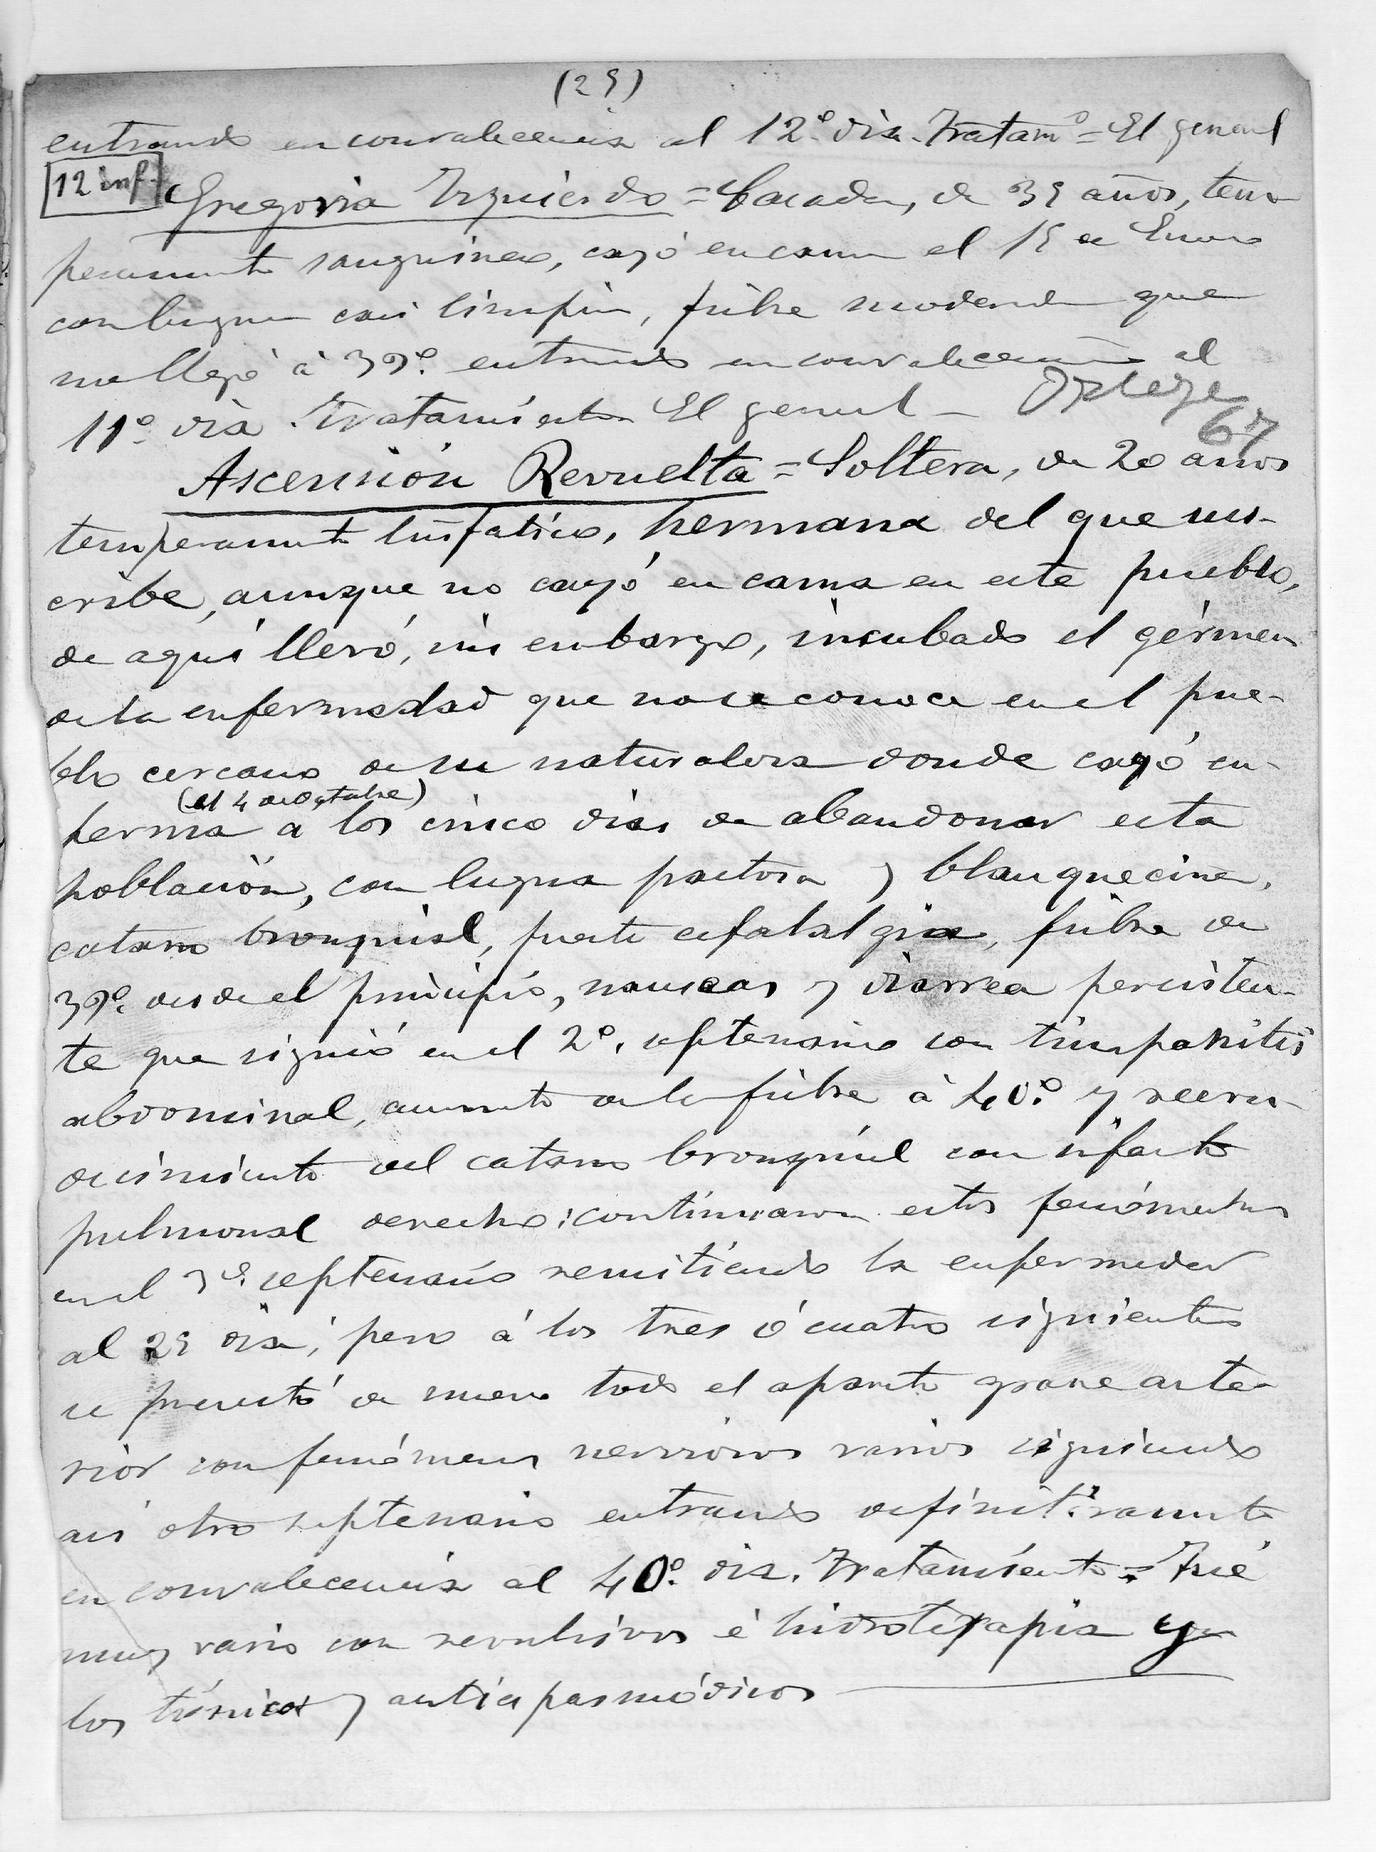 (25)
entrando en convalecencia al 12.º dia. Tratamº = El general
12 inf.
Gregoria Izquierdo = Casada, de 35 años, tem-
peramento sanguineo, cayó en cama el 15 de Enero
con lengua casi limpia, fiebre moderada que
no llegó á 39º. entrando en convalecencia al
11º. dia. Tratamiento El general —
Ortega
67
Ascensión Revuelta = Soltera, de 20 años
temperamento linfatico, hermana del que sus-
cribe, aunque no cayó en cama en este pueblo,
de aqui llevó, sin embargo, incubado el gérmen
de la enfermedad que no se conoce en el pue-
blo cercano de su naturaleza donde cayó en-
(el 4 de Octubre)
ferma a los cinco dias de abandonar esta
poblacion, con lengua pastosa y blanquecina,
catarro bronquial, fuerte cefalalgia, fiebre de
39º. desde el principio, nauseas y diarrea persisten-
te que siguió en el 2º. septenario con timpanitis
abdominal, aumento de la fiebre á 40.º y recru-
decimiento del catarro bronquial con infarto
pulmonal derecho; continuaron estos fenómenos
en el 3º. septenario remitiendo la enfermedad
al 25 dia; pero á los tres ó cuatro siguientes
se presentó de nuevo todo el aparato grave ante-
rior con fenómenos nerviosos varios siguiendo
asi otro septenario entrando definitivamente
en convalecencia al 40º. dia. Tratamiento = Fué
muy vario con revulsivos é hidroterapia y
los tónicos y antiespasmódicos